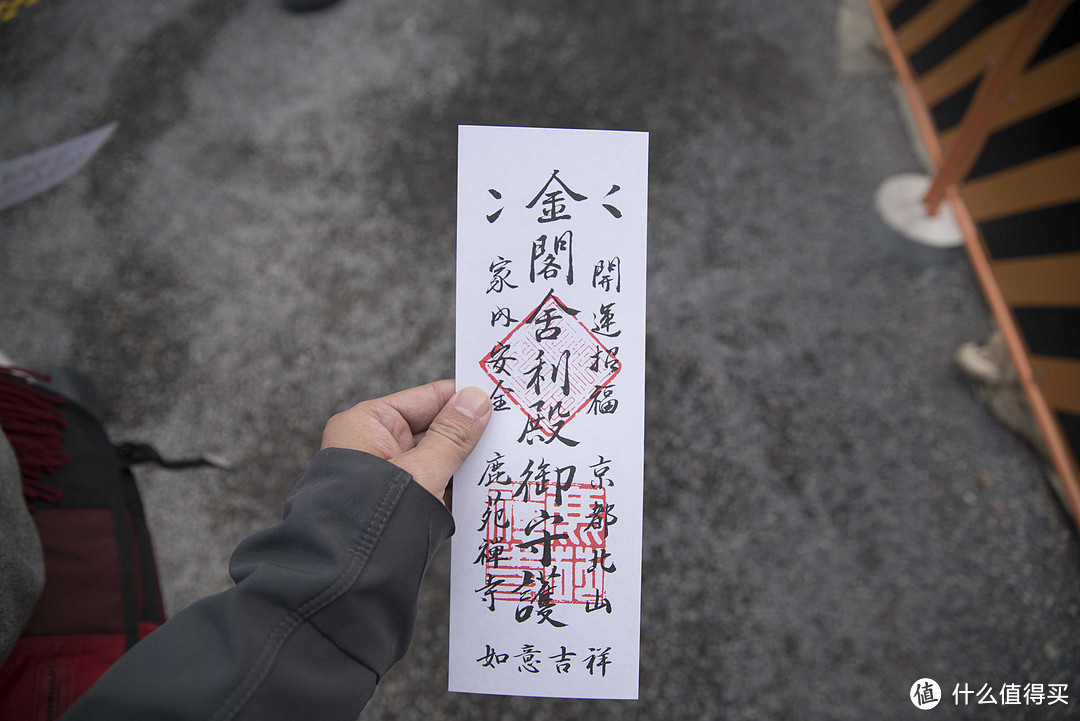 開運招福
京都北山
金閣舍利殿御守護
家内安全
鹿苑禅寺
如意吉祥
值 什么值得买